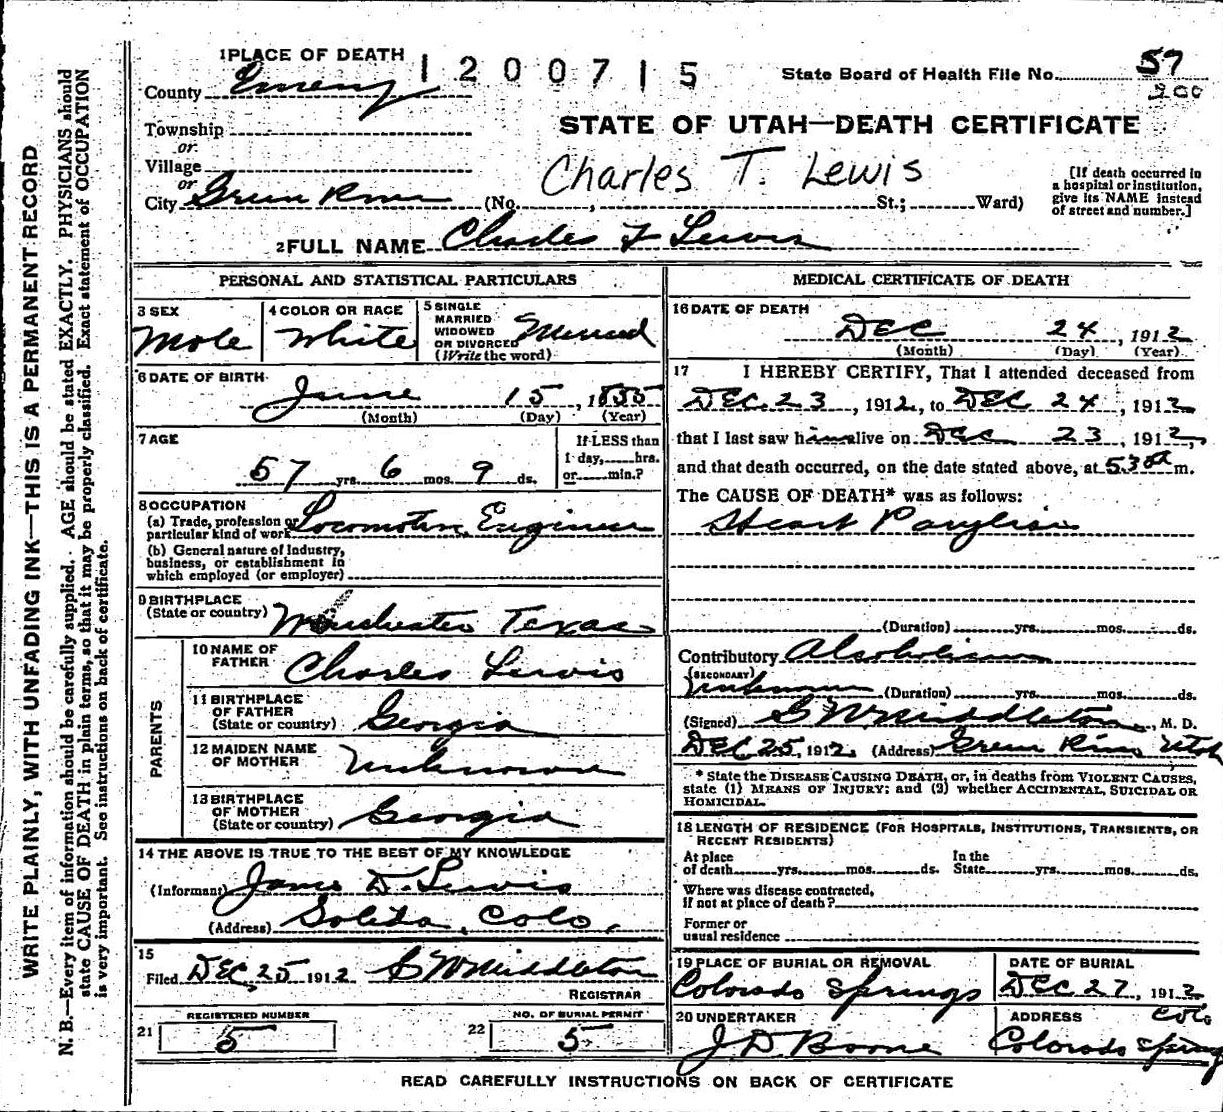 WRITE PLAINLY, WITH UNFADING INK—THIS IS A PERMANENT RECORD
N. B.—Every item of information should be carefully supplied. AGE should be stated EXACTLY. PHYSICIANS should
state CAUSE OF DEATH in plain terms, so that it may be properly classified. Exact statement of OCCUPATION
is very important. See instructions on back of certificate.
1 PLACE OF DEATH
1200715
State Board of Health File No. 59
300
County Emery
STATE OF UTAH—DEATH CERTIFICATE
Township
or
Village
or
Charles T. Lewis
[If death occurred in
a hospital or institution,
give its NAME instead
of street and number.]
City Green River (No. , St.; Ward)
2 FULL NAME Charles T Lewis
PERSONAL AND STATISTICAL PARTICULARS
3 SEX
Male
4 COLOR OR RACE
White
5 SINGLE
MARRIED
WIDOWED
OR DIVORCED
(Write the word)
Married
6 DATE OF BIRTH
June 15, 1855
(Month) (Day) (Year)
7 AGE
57 yrs. 6 mos. 9 ds.
If LESS than
1 day, hrs.
or min.?
8 OCCUPATION
(a) Trade, profession or
particular kind of work Locomotive Engineer
(b) General nature of industry,
business, or establishment in
which employed (or employer)
9 BIRTHPLACE
(State or country) Winchester Texas
PARENTS
10 NAME OF
FATHER Charles Lewis
11 BIRTHPLACE
OF FATHER
(State or country) Georgia
12 MAIDEN NAME
OF MOTHER Unknown
13 BIRTHPLACE
OF MOTHER
(State or country) Georgia
14 THE ABOVE IS TRUE TO THE BEST OF MY KNOWLEDGE
(Informant) James D. Lewis
(Address) Salida, Colo,
15
Filed Dec 25 1912 C W Middleton
REGISTRAR
21 REGISTERED NUMBER
5
22 NO. OF BURIAL PERMIT
5
MEDICAL CERTIFICATE OF DEATH
16 DATE OF DEATH
Dec 24, 1912
(Month) (Day) (Year)
17 I HEREBY CERTIFY, That I attended deceased from
Dec. 23, 1912, to Dec 24, 1912
that I last saw him alive on Dec 23, 1912,
and that death occurred, on the date stated above, at 530 a m.
The CAUSE OF DEATH* was as follows:
Heart Paryliss
(Duration) yrs. mos. ds.
Contributory Alcoholism
(SECONDARY)
Unknown (Duration) yrs. mos. ds.
(Signed) C W Middleton, M. D.
Dec 25, 1912 (Address) Green River Utah
* State the DISEASE CAUSING DEATH, or, in deaths from VIOLENT CAUSES,
state (1) MEANS OF INJURY; and (2) whether ACCIDENTAL, SUICIDAL OR
HOMICIDAL.
18 LENGTH OF RESIDENCE (FOR HOSPITALS, INSTITUTIONS, TRANSIENTS, OR
RECENT RESIDENTS)
At place
of death yrs. mos. ds.
In the
State yrs. mos. ds.
Where was disease contracted,
if not at place of death?
Former or
usual residence
19 PLACE OF BURIAL OR REMOVAL
Colorado Springs
DATE OF BURIAL
Dec 27, 1912
20 UNDERTAKER
J D Boone
ADDRESS Colo
Colorado Spring
READ CAREFULLY INSTRUCTIONS ON BACK OF CERTIFICATE